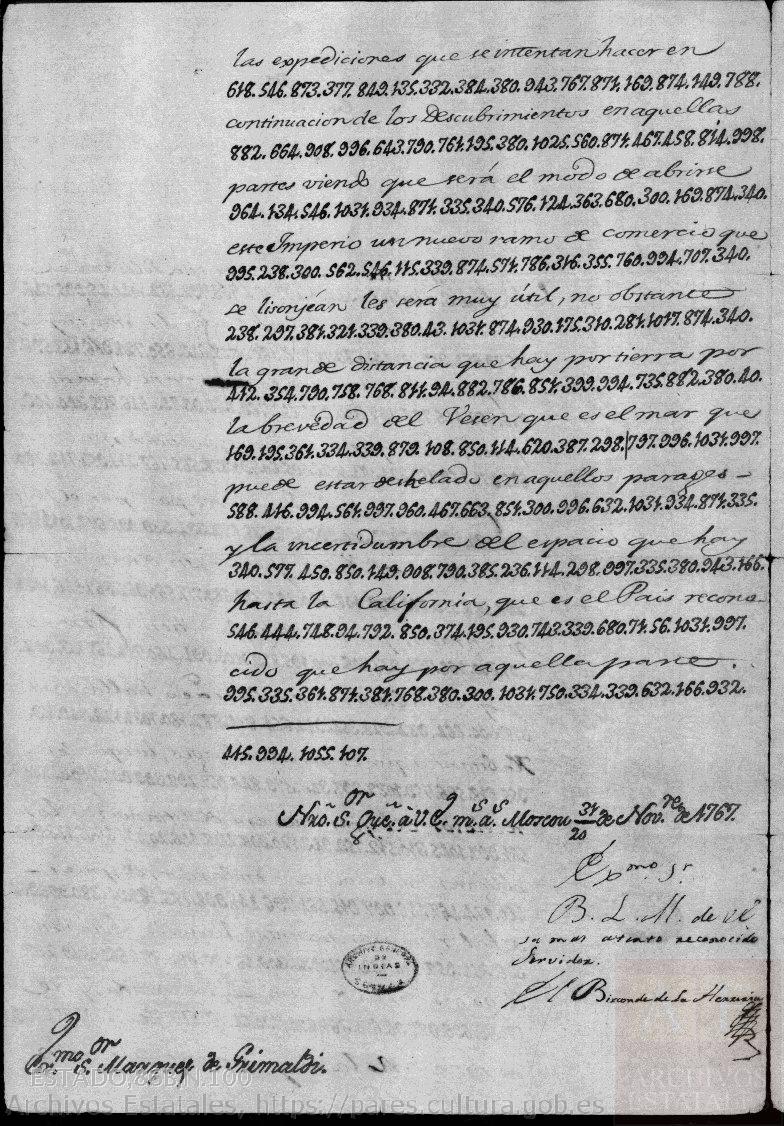 las expediciones que se intentan hacer en
618.546.873.377.849.135.332.384.380.943.767.871.169.874.149.788.
continuacion de los Descubrimientos en aquellas
882.664.908.996.643.790.761.195.380.1025.560.871.467.458.814.998.
partes viendo que será el módo de abrirse
964.134.546.1031.934.871.335.340.576.124.363.680.300.169.874.340.
este Imperio un nuevo ramo de comercio que
995.238.300.562.546.115.339.874.571.786.316.355.760.994.707.340.
se lisonjean les será muy útil, no obstante
238.297.381.321.339.380.43.1031.874.930.175.310.281.1017.874.340.
la grande distancia que hay por tierra por
412.354.790.758.768.811.94.882.786.851.399.994.735.882.380.40.
la brevedad del Veren que es el mar que
169.195.361.334.339.879.108.850.114.620.387.298.797.996.1031.997.
puede estar deshelado en aquellos parages
588.416.994.561.997.960.467.663.851.300.996.632.1031.934.871.335.
y la incertidumbre del espacio que hay
340.577.450.850.149.908.790.385.236.114.298.997.335.380.943.166.
hasta la California, que es el Pais recono-
546.444.748.94.792.850.374.195.930.743.339.680.71.56.1031.997.
cido que hay por aquella parte.
995.335.361.871.381.768.380.300.1031.750.334.339.632.166.932.
415.994.1055.107.
Nrõ. S.or Gue. à V.E. m.s a.s Moscou 31/20 de Nov.re de 1767.
Exmo. Sr.
B. L. M. de VE
su mas atento reconocido
Servidor.
El Bizconde de La Herreria
ARCHIVO GENERAL
DE
INDIAS
Exmo. S.or Marques de Grimaldi.
ESTADO,86BN.100
Archivos Estatales, https://pares.cultura.gob.es
ARCHIVOS
ESTATALES